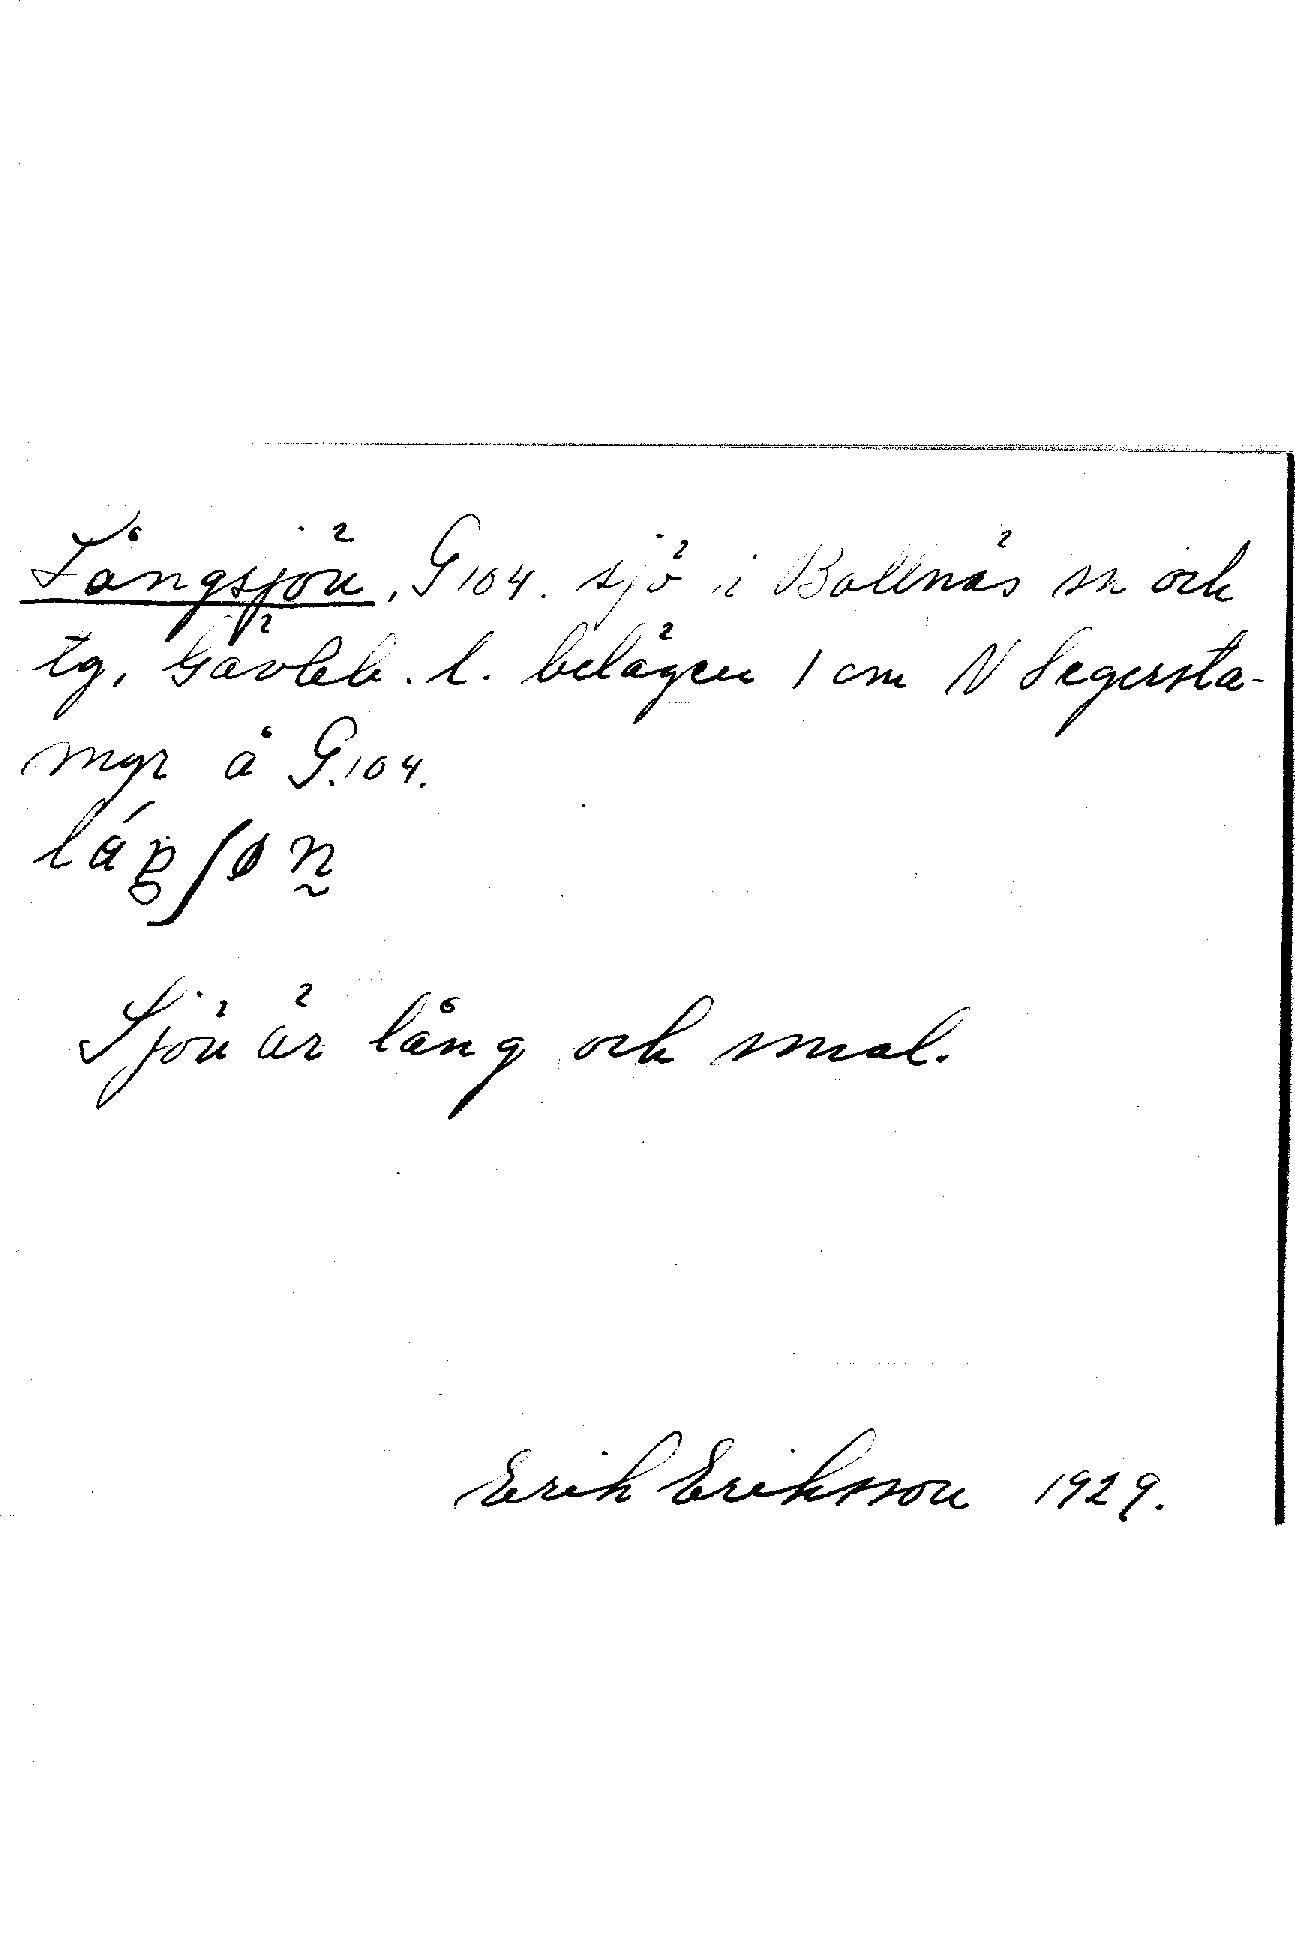 Långsjön, G104. sjö i Bollnäs sn och
tg, Gävleb. l. belägen 1 cm N Segersta-
myr å G.104.
Sjön är lång och smal.
Erik Eriksson 1929.